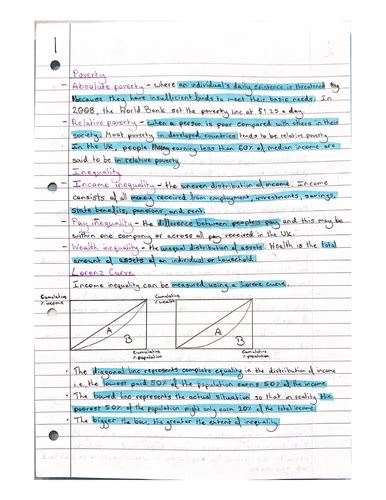 1
Poverty
- Absolute poverty - where an individual's daily existence is threatened
because they have insufficient funds to meet their basic needs. In
2008, the World Bank set the poverty line at $1.25 a day.
- Relative poverty - when a person is poor compared with others in their
society. Most poverty in developed countries tends to be relative poverty.
In the UK, people earning less than 60% of median income are
said to be in relative poverty
Inequality
- Income inequality - the uneven distribution of income. Income
consists of all money received from employment, investments, savings,
state benefits, pensions, and rent.
- Pay inequality - the difference between people's pay and this may be
within one company or across all pay received in the UK.
- Wealth inequality - the unequal distribution of assets. Wealth is the total
amount of assets of an individual or household.
Lorenz Curve
Income inequality can be measured using a Lorenz curve.
Cumulative
% income
A
B
Cumulative
% population
Cumulative
% wealth
A
B
Cumulative
% population
• The diagonal line represents complete equality in the distribution of income
i.e., the lowest paid 50% of the population earns 50% of the income
• The bowed line represents the actual situation so that in reality the
poorest 50% of the population might only earn 20% of the total income
• The bigger the bow, the greater the extent of inequality